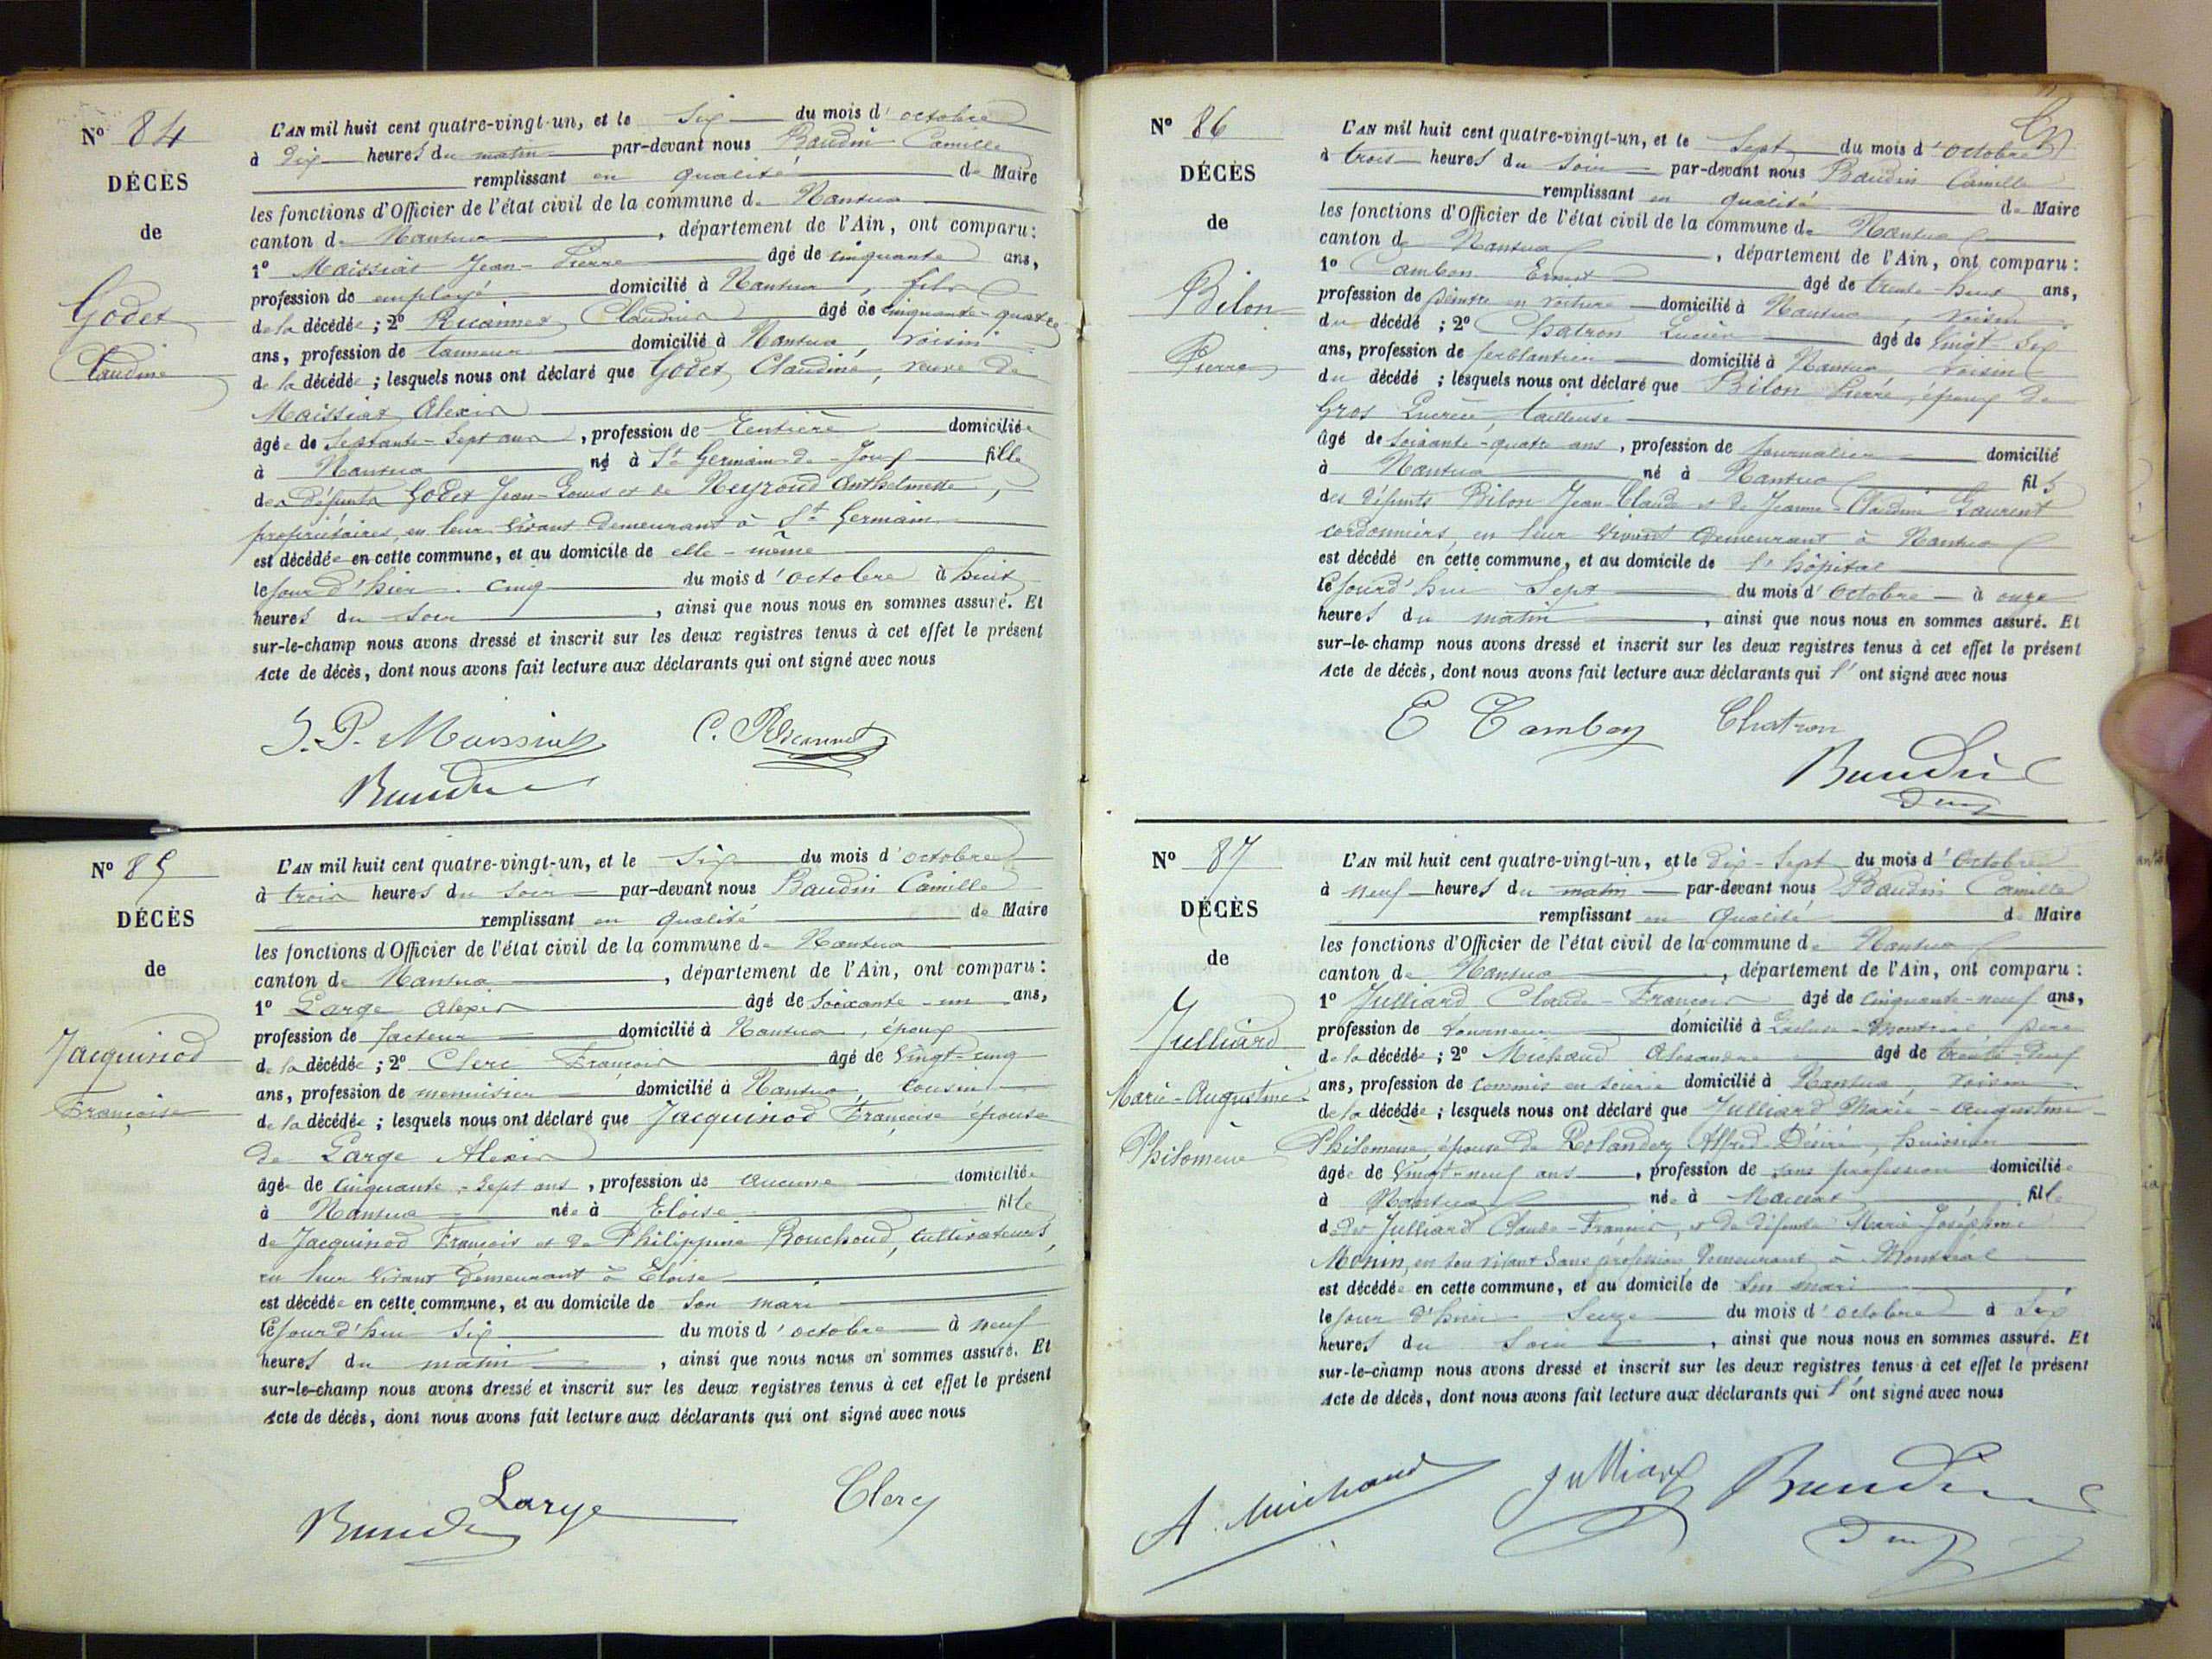 Nº 84
DÉCÈS
de
Godet
Claudine
L'AN mil huit cent quatre-vingt-un, et le Six du mois d'octobre
à Dix heures du matin par-devant nous Baudin Camille
remplissant en qualité de Maire
les fonctions d'Officier de l'état civil de la commune de Nantua
canton de Nantua, département de l'Ain, ont comparu:
1º Maissiat Jean-Pierre âgé de cinquante ans,
profession de employé domicilié à Nantua, fils
de la décédée; 2º Claudius âgé de cinquante-quatre
ans, profession de tanneur domicilié à Nantua, voisin
de la décédée; lesquels nous ont déclaré que Godet Claudine, veuve de
Maissiat Alexis
âgée de Septante-Sept ans, profession de Rentière domiciliée
à Nantua né à St Germain-de-Joux fille
des défunts Godet Jean-Louis et de Neyroud Anthelmette,
propriétaires, en leur vivant demeurant à St Germain
est décédée en cette commune, et au domicile de elle-même
le jour d'hier cinq du mois d'octobre à huit
heures du soir, ainsi que nous nous en sommes assuré. Et
sur-le-champ nous avons dressé et inscrit sur les deux registres tenus à cet effet le présent
Acte de décès, dont nous avons fait lecture aux déclarants qui ont signé avec nous
J. P. Maissiat C.
Baudin
Nº 85
DÉCÈS
de
Jacquinod
Françoise
L'AN mil huit cent quatre-vingt-un, et le Six du mois d'octobre
à trois heures du soir par-devant nous Baudin Camille
remplissant en qualité de Maire
les fonctions d'Officier de l'état civil de la commune de Nantua
canton de Nantua, département de l'Ain, ont comparu:
1º Large Alexis âgé de soixante-un ans,
profession de facteur domicilié à Nantua, époux
de la décédée; 2º Clerc François âgé de vingt-cinq
ans, profession de menuisier domicilié à Nantua, cousin
de la décédée; lesquels nous ont déclaré que Jacquinod Françoise épouse
de Large Alexis
âgée de cinquante-sept ans, profession de aucune domiciliée
à Nantua née à Eloise fille
de Jacquinod François et de Philippine Bouchoud, cultivateurs,
en leur vivant demeurant à Eloise
est décédée en cette commune, et au domicile de son mari
le jourd'hui Six du mois d'octobre à neuf
heures du matin, ainsi que nous nous en sommes assuré. Et
sur-le-champ nous avons dressé et inscrit sur les deux registres tenus à cet effet le présent
Acte de décès, dont nous avons fait lecture aux déclarants qui ont signé avec nous
Large Clerc
Baudin
Nº 86
DÉCÈS
de
Bilon
Pierre
L'AN mil huit cent quatre-vingt-un, et le Sept du mois d'octobre
à trois heures du soir par-devant nous Baudin Camille
remplissant en qualité de Maire
les fonctions d'Officier de l'état civil de la commune de Nantua
canton de Nantua, département de l'Ain, ont comparu:
1º Cambon Ernest âgé de trente-huit ans,
profession de peintre en voiture domicilié à Nantua, voisin
du décédé; 2º Chatron Lucien âgé de vingt six
ans, profession de ferblantier domicilié à Nantua voisin
du décédé; lesquels nous ont déclaré que Bilon Pierre, époux de
Gros Lucrèce, tailleuse
âgé de soixante-quatre ans, profession de journalier domicilié
à Nantua né à Nantua fils
des défunts Bilon Jean-Claude et de Jeanne-Claudine Laurent
cordonniers, en leur vivant demeurant à Nantua
est décédé en cette commune, et au domicile de l'hôpital
le jourd'hui Sept du mois d'octobre à onze
heures du matin, ainsi que nous nous en sommes assuré. Et
sur-le-champ nous avons dressé et inscrit sur les deux registres tenus à cet effet le présent
Acte de décès, dont nous avons fait lecture aux déclarants qui l'ont signé avec nous
E Cambon Chatron
Baudin
Nº 87
DÉCÈS
de
Julliard
Marie-Augustine
Philomène
L'AN mil huit cent quatre-vingt-un, et le Dix-Sept du mois d'octobre
à neuf heures du matin par-devant nous Baudin Camille
remplissant en qualité de Maire
les fonctions d'Officier de l'état civil de la commune de Nantua
canton de Nantua, département de l'Ain, ont comparu:
1º Julliard Claude-François âgé de cinquante-neuf ans,
profession de tourneur domicilié à Montréal père
de la décédée; 2º Michaud Alexandre âgé de trente-neuf
ans, profession de commis en soierie domicilié à Nantua, voisin
de la décédée; lesquels nous ont déclaré que Julliard Marie-Augustine
Philomène, épouse de Rolandez Alfred Désiré, huissier
âgée de vingt-neuf ans, profession de sans profession domiciliée
à Nantua née à Maillat fille
de Julliard Claude-François, et de défunte Marie Joséphine
Monin, en son vivant sans profession demeurant à Montréal
est décédée en cette commune, et au domicile de son mari
le jour d'hier Seize du mois d'octobre à Six
heures du soir, ainsi que nous nous en sommes assuré. Et
sur-le-champ nous avons dressé et inscrit sur les deux registres tenus à cet effet le présent
Acte de décès, dont nous avons fait lecture aux déclarants qui l'ont signé avec nous
A. Michaud Julliard Baudin